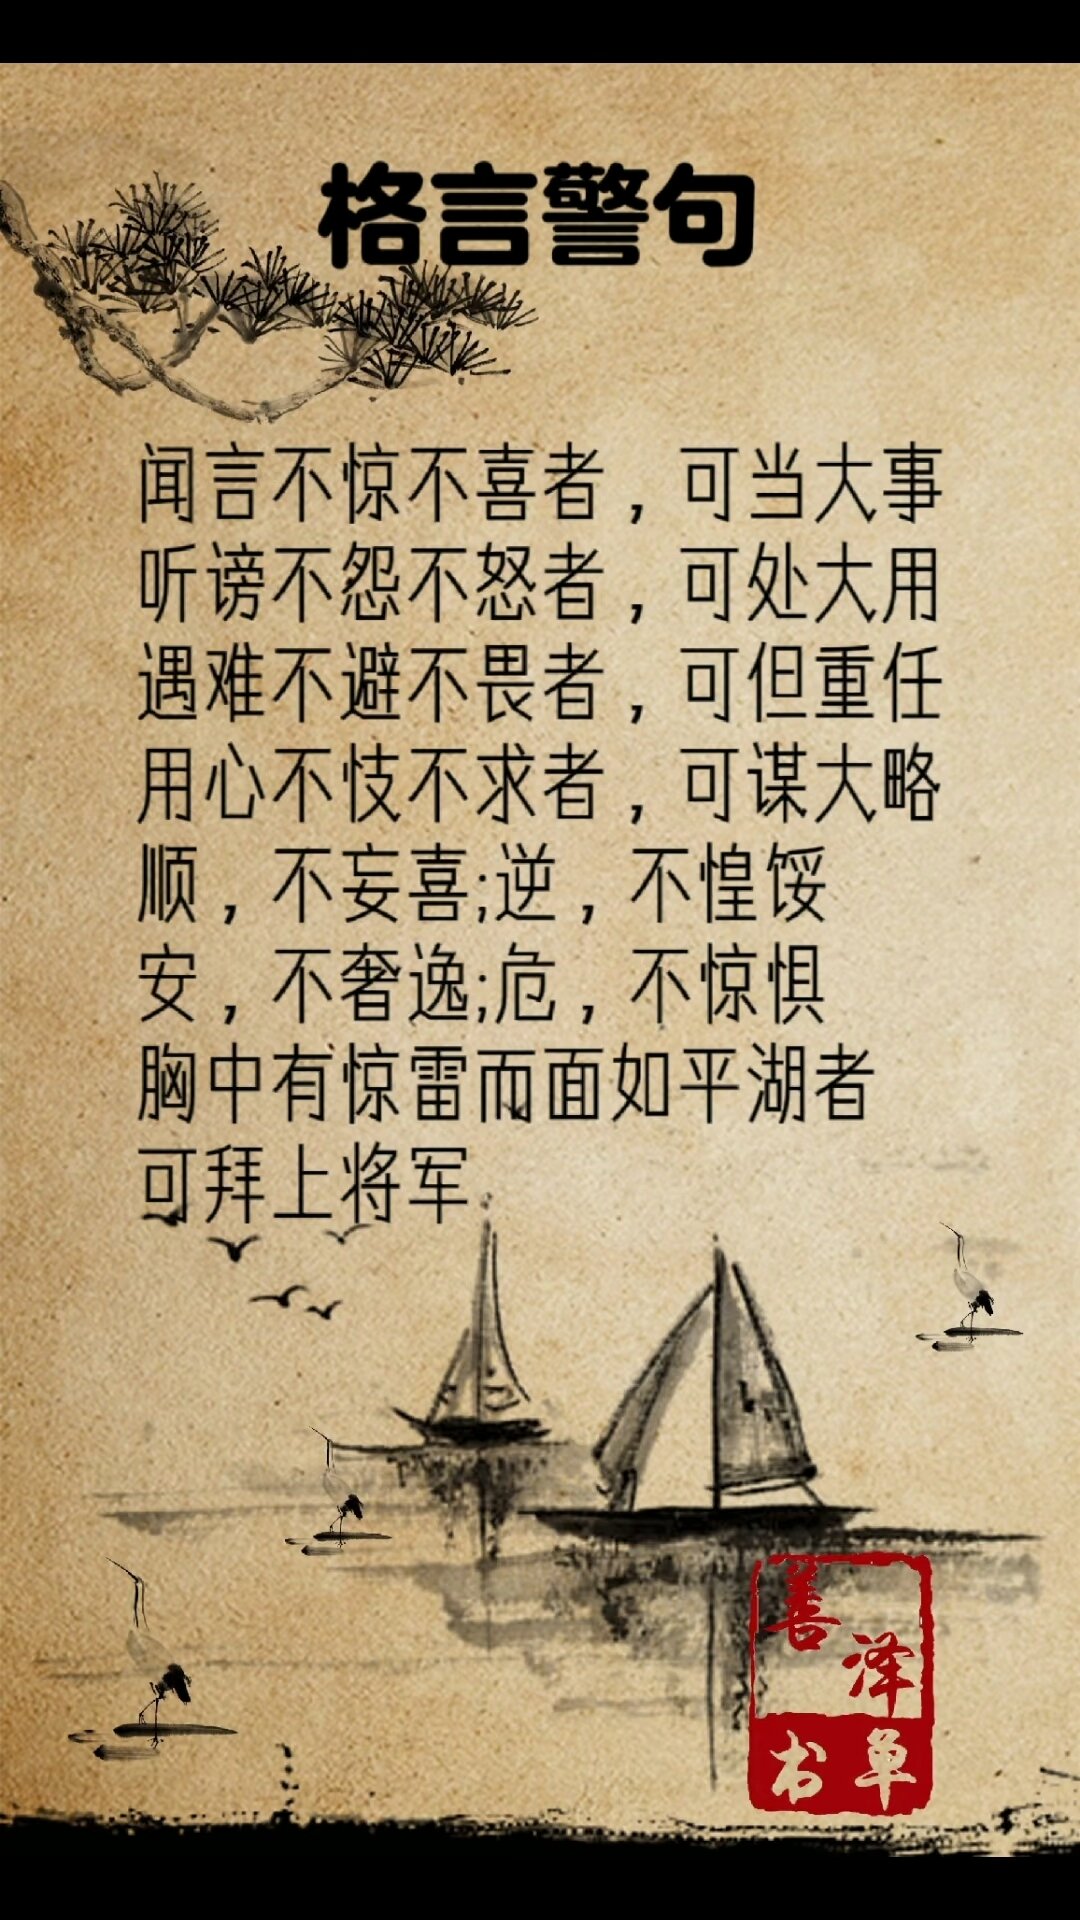 格言警句
闻言不惊不喜者，可当大事
听谤不怨不怒者，可处大用
遇难不避不畏者，可但重任
用心不忮不求者，可谋大略
顺，不妄喜;逆，不惶馁
安，不奢逸;危，不惊惧
胸中有惊雷而面如平湖者
可拜上将军
善泽
书单